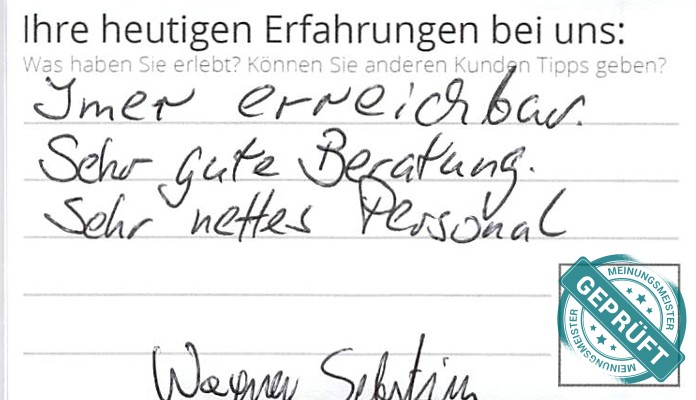 Ihre heutigen Erfahrungen bei uns:
Was haben Sie erlebt? Können Sie anderen Kunden Tipps geben?
Imer erreichbar.
Sehr gute Beratung.
Sehr nettes Personal
MEINUNGSMEISTER
GEPRÜFT
MEINUNGSMEISTER
Wagner